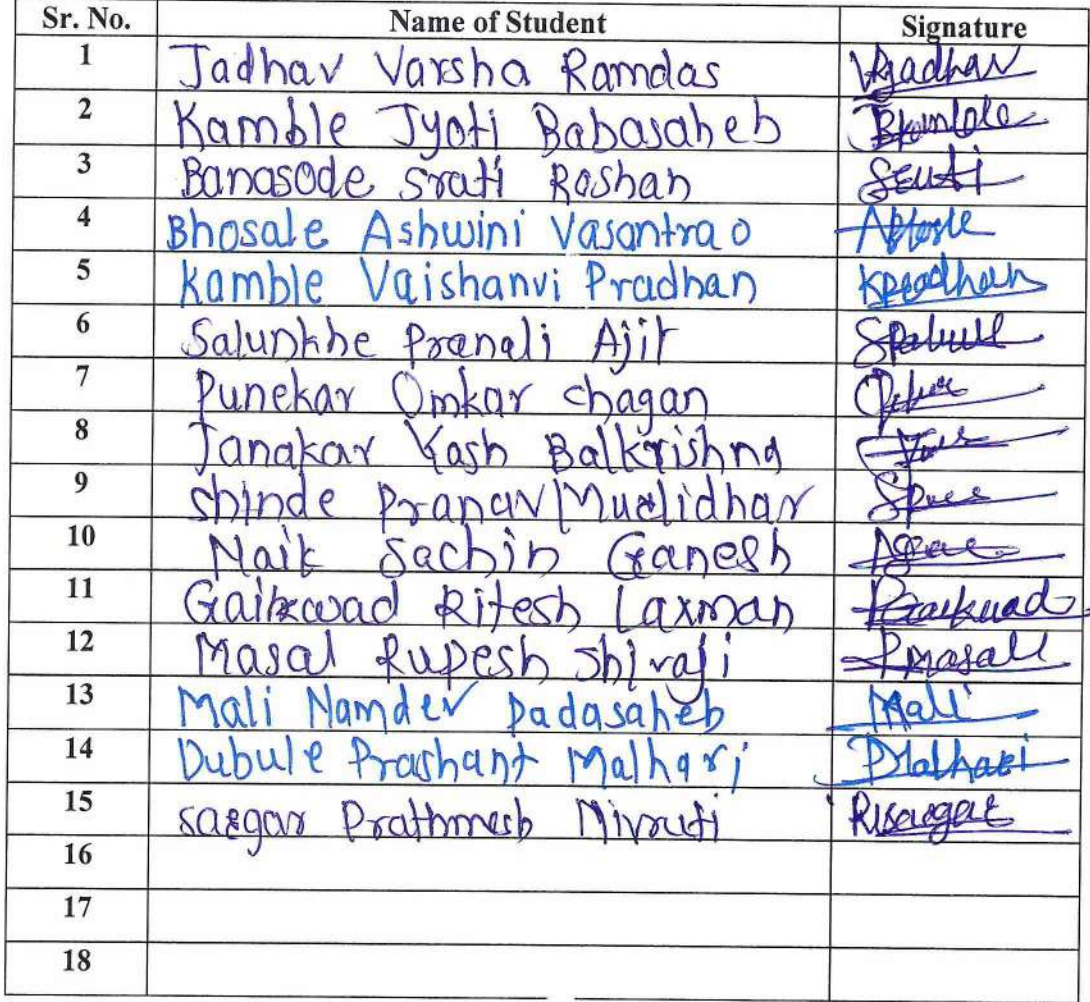 Sr. No. Name of Student Signature
1 Jadhav Varsha Ramdas VRJadhav
2 Kamble Jyoti Babasaheb
3 Banasode srati Roshan
4 Bhosale Ashwini Vasantrao
5 Kamble Vaishanvi Pradhan KPradhan
6 Salunkhe Pranali Ajit
7 Punekar Omkar chagan
8 Janakar Yash Balkrishna
9 shinde Pranav Muralidhar
10 Naik Sachin Ganesh
11 Gaikwad Ritesh Laxman
12 Masal Rupesh Shivaji
13 Mali Namdev Dadasaheb Mali
14 Dubule Prashant Malharj
15 sargar Prathmesh Nivruti
16
17
18